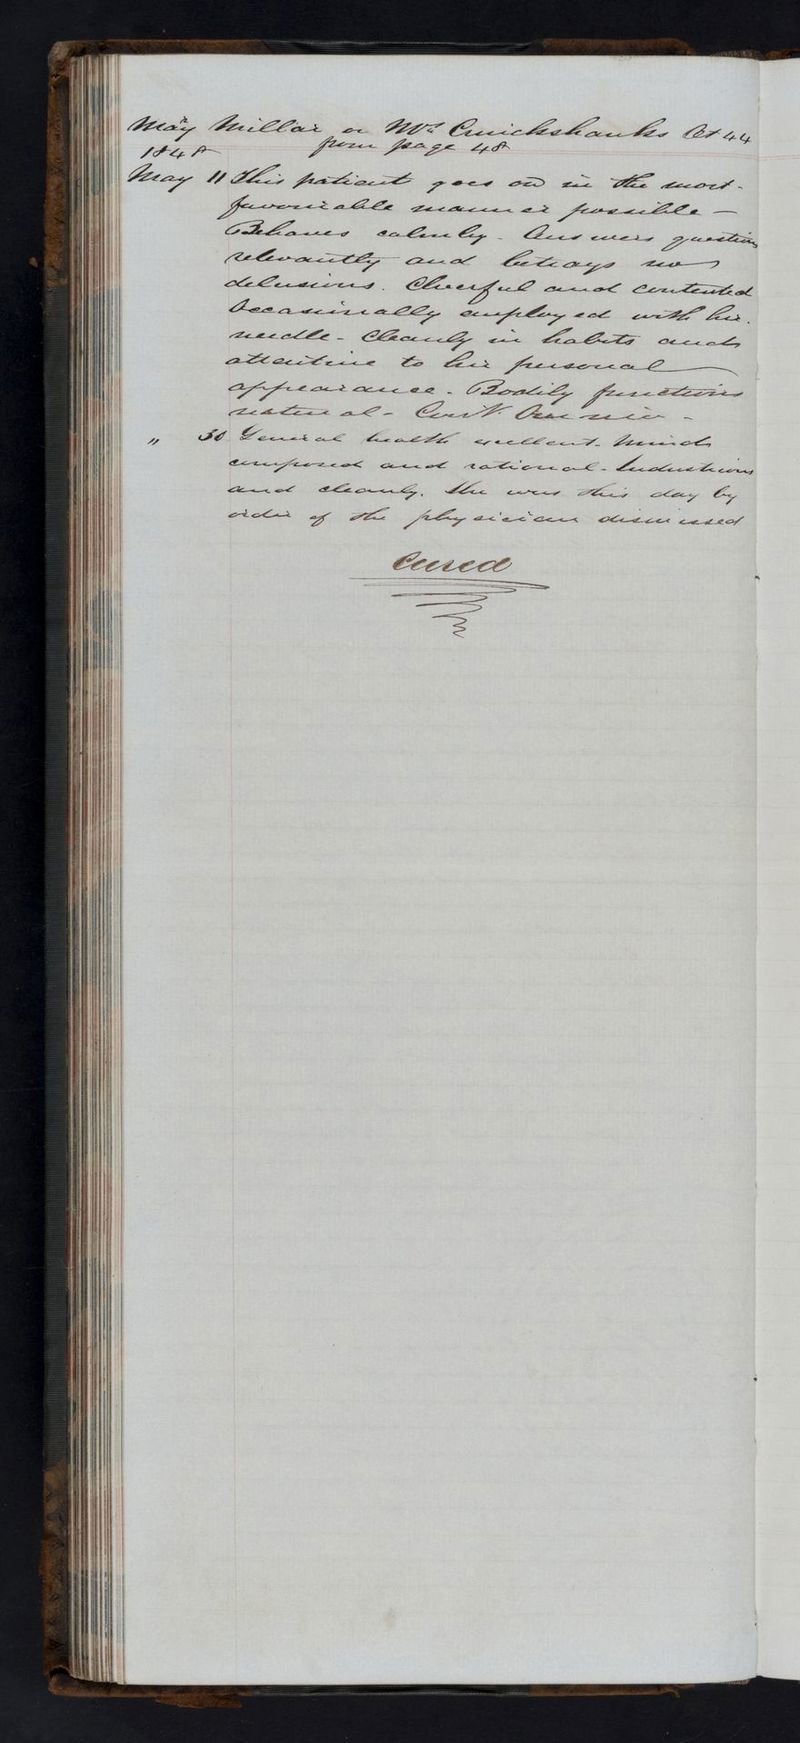 Mary Millar or Mrs Cruickshanks Æt 44
from page 48
1848
May 11 This patient goes on in the most
favourable manner possible —
Behaves calmly. Answers questions
relevantly and betrays no
delusions. Cheerful and contented
Occasionally employed with her
needle - Cleanly in habits and
attentive to her personal
appearance. Bodily functions
natural - Contr. Omnia -
" 30 General health excellent. Mind
composed and rational - Industrious
and cleanly. She was this day by
order of the physician dismissed
Cured